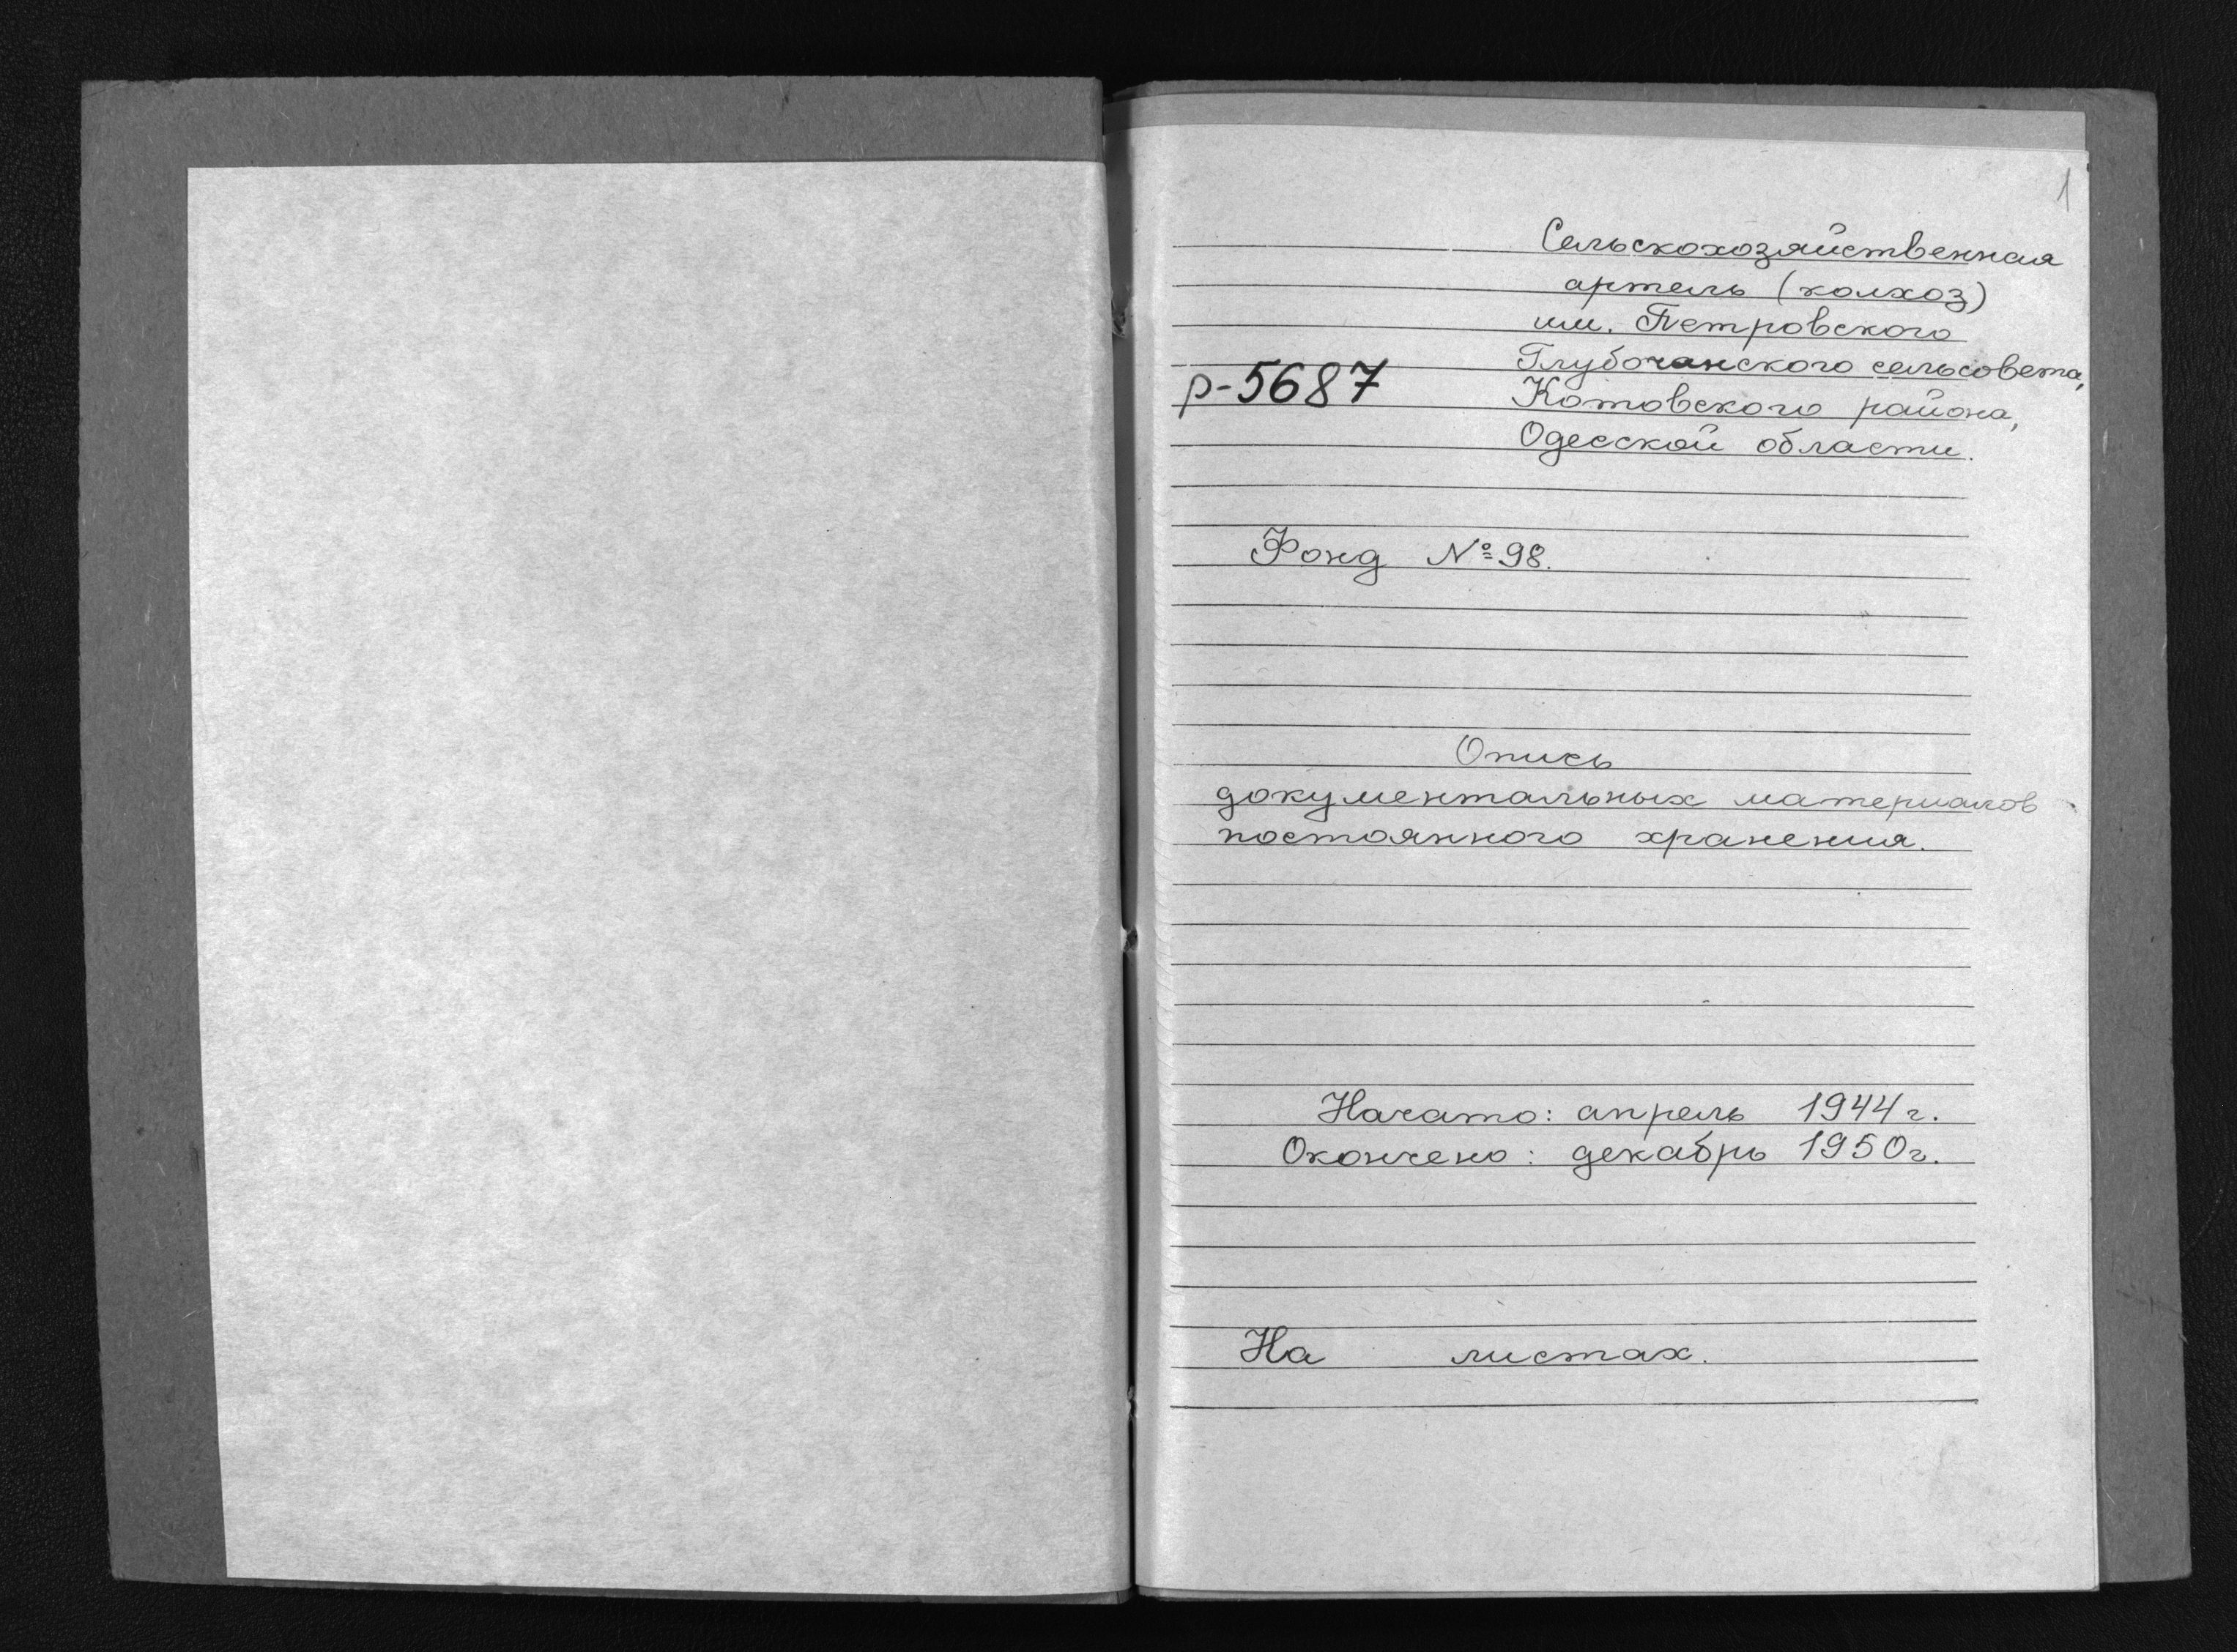 1
Сельскохозяйственная
артель (колхоз)
им. Петровского
Глубочанского сельсовета,
р-5687
Котовского района,
Одесской области.
Фонд № 98.
Опись
документальных материалов
постоянного хранения.
Начато: апрель 1944 г.
Окончено: декабрь 1950 г.
На листах.